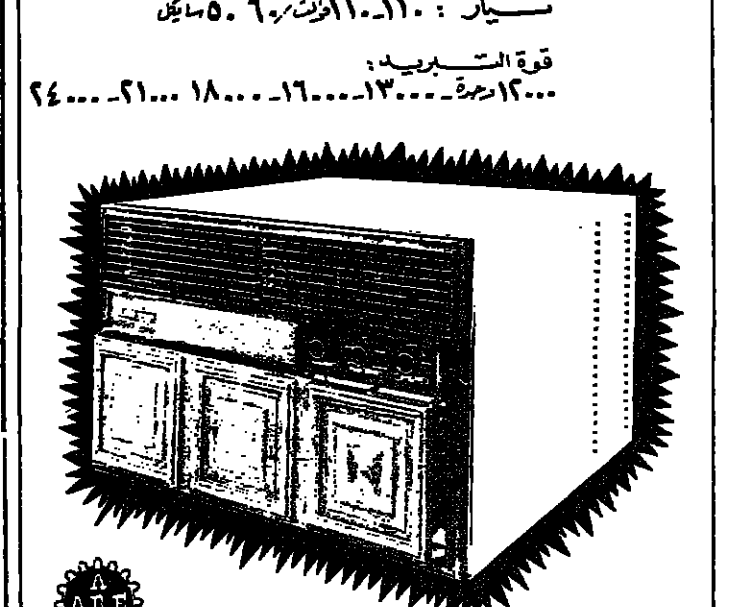 تسيار : ١١٠ــ١١٠فولت/٦٠ ـ ٥٠سايكل
قوة التــبريــد:
١٢٠٠٠وحدة ــ ١٣٠٠٠ــ ١٦٠٠٠ــ ١٨٠٠٠ ٢١٠٠٠ــ ٢٤٠٠٠
A